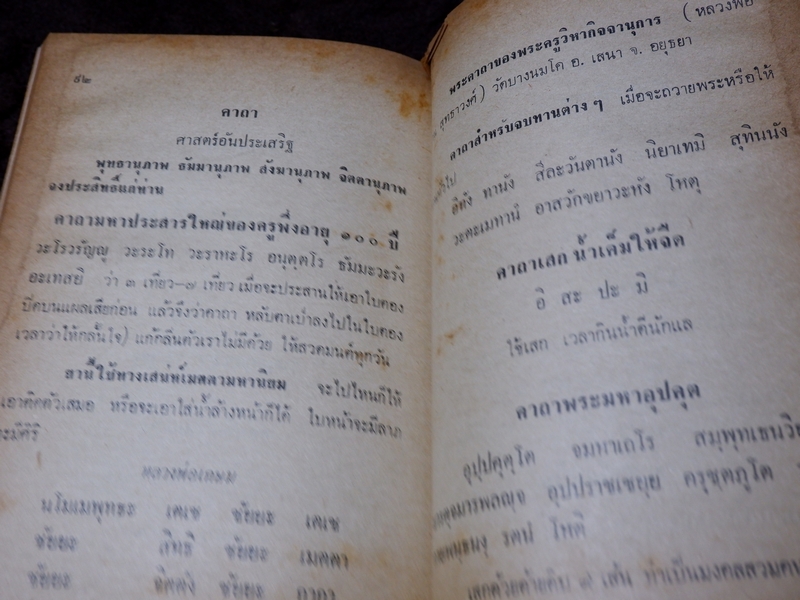 ๕๒
คาถา
ศาสตร์อันประเสริฐ
พุทธานุภาพ ธัมมานุภาพ สังฆานุภาพ จิตตานุภาพ
จงประสิทธิ์แก่ท่าน
คาถามหาประสารใหญ่ของครูพึ่งอายุ ๑๐๐ ปี
วะโรวรัญญู วะระโท วะราหะโร อนุตฺตโร ธัมมะวะรัง
อะเทสยิ ว่า ๓ เที่ยว—๗ เที่ยว เมื่อจะประสานให้เอาใบตอง
ปิดบนแผลเสียก่อน แล้วจึงว่าคาถา หลับตาเป่าลงไปในใบตอง
เวลาว่าให้กลั้นใจ) แก้กลิ่นตัวเราไม่มีด้วย ให้สวดมนต์ทุกวัน
ถ้าใช้ทางเสน่ห์เมตตามหานิยม จะไปไหนก็ให้
เอาติดตัวเสมอ หรือจะเอาใส่น้ำล้างหน้าก็ได้ ใบหน้าจะมีลาภ
ะมีศิริ
หลวงพ่อเกษม
นโมเมพุทธะ เตเช ชัยยะ เตเช
ชัยยะ สิทธิ ชัยยะ เมตตา
ชัยยะ จิตตัง ชัยยะ
พระคาถาของพระครูวิหารกิจจานุการ (หลวงพ่อ
สุทธาวงศ์) วัดบางนมโค อ. เสนา จ. อยุธยา
คาถาสำหรับจบทานต่าง ๆ เมื่อจะถวายพระหรือให้
ทานัง สีละวันตานัง นิยาเทมิ สุทินนัง
วะตะเมทานํ อาสวักขยาวะหัง โหตุ
คาถาเสก น้ำเค็มให้จืด
อิ สะ ปะ มิ
ใช้เสก เวลากินน้ำดีนักแล
คาถาพระมหาอุปคุต
อุปฺปคุตฺโต จมหาเถโร สมฺพุทเธน
อุปปราชเชยฺย
รตนํ โหติ
เสกด้วยด้ายดิบ ๙ เส้น ทำเป็นมงคลสวม